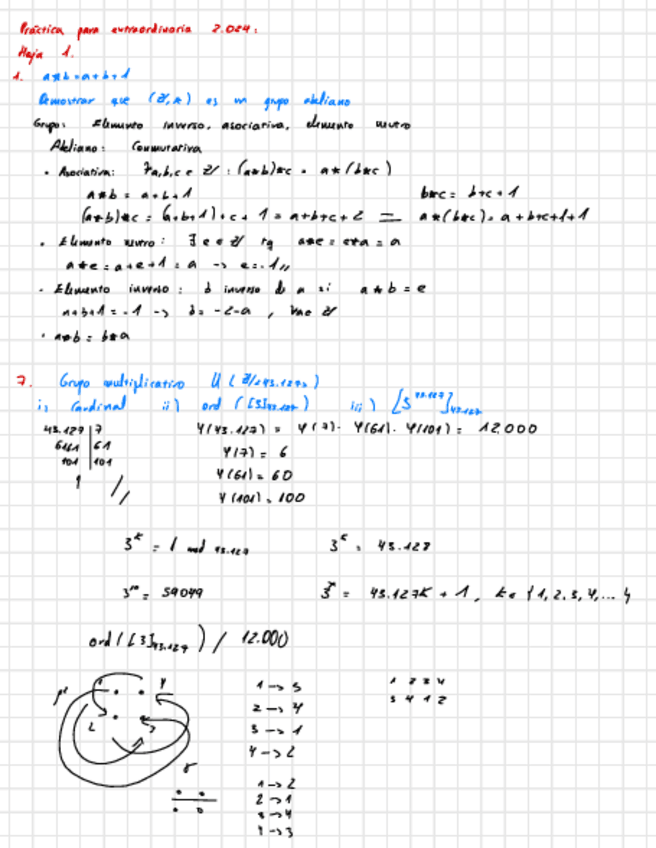 Práctica para extraordinaria 2.024:
Hoja 1.
1. a*b=a+b+1
Demostrar que (Z,*) es un grupo abeliano
Grupo: Elemento inverso, asociativa, elemento neutro
Abeliano: Conmutativa
• Asociativa: ∀a,b,c ∈ Z : (a*b)*c = a*(b*c)
a*b = a+b+1 b*c = b+c+1
(a*b)*c = (a+b+1)+c+1 = a+b+c+2 = a*(b*c) = a+b+c+1+1
• Elemento neutro: ∃ e ∈ Z tq a*e = e*a = a
a*e = a+e+1 = a -> e=-1//
• Elemento inverso: b inverso de a si a*b = e
a+b+1 = -1 -> b = -2-a, ∀a∈Z
• a*b = b*a
7. Grupo multiplicativo U(Z/43.127Z)
i) Cardinal ii) ord([3]43.127) iii) [3^43.127]43.127
43.127 | 7 φ(43.127) = φ(7)·φ(61)·φ(101) = 12.000
6161 | 61 φ(7) = 6
101 | 101 φ(61) = 60
1 // φ(101) = 100
3^k = 1 mod 43.127 3^k = 43.128
3^10 = 59049 = 43.127k + 1, k∈{1,2,3,4,...}
ord([3]43.127) / 12.000
1 -> 3 1 2 3 4
2 -> 4 3 4 1 2
3 -> 1
4 -> 2
1 -> 2
2 -> 1
3 -> 4
4 -> 3